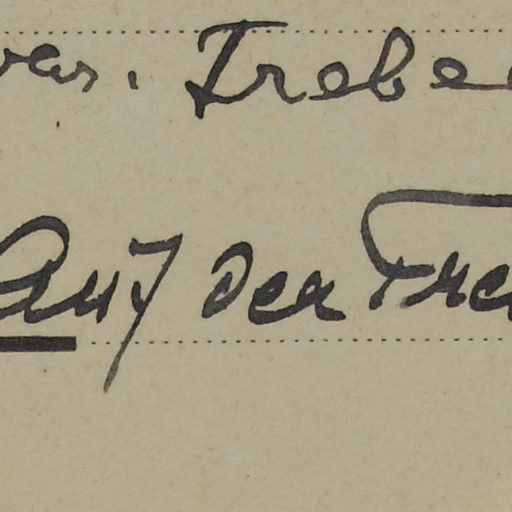 var. Trebe
Auf der Tre